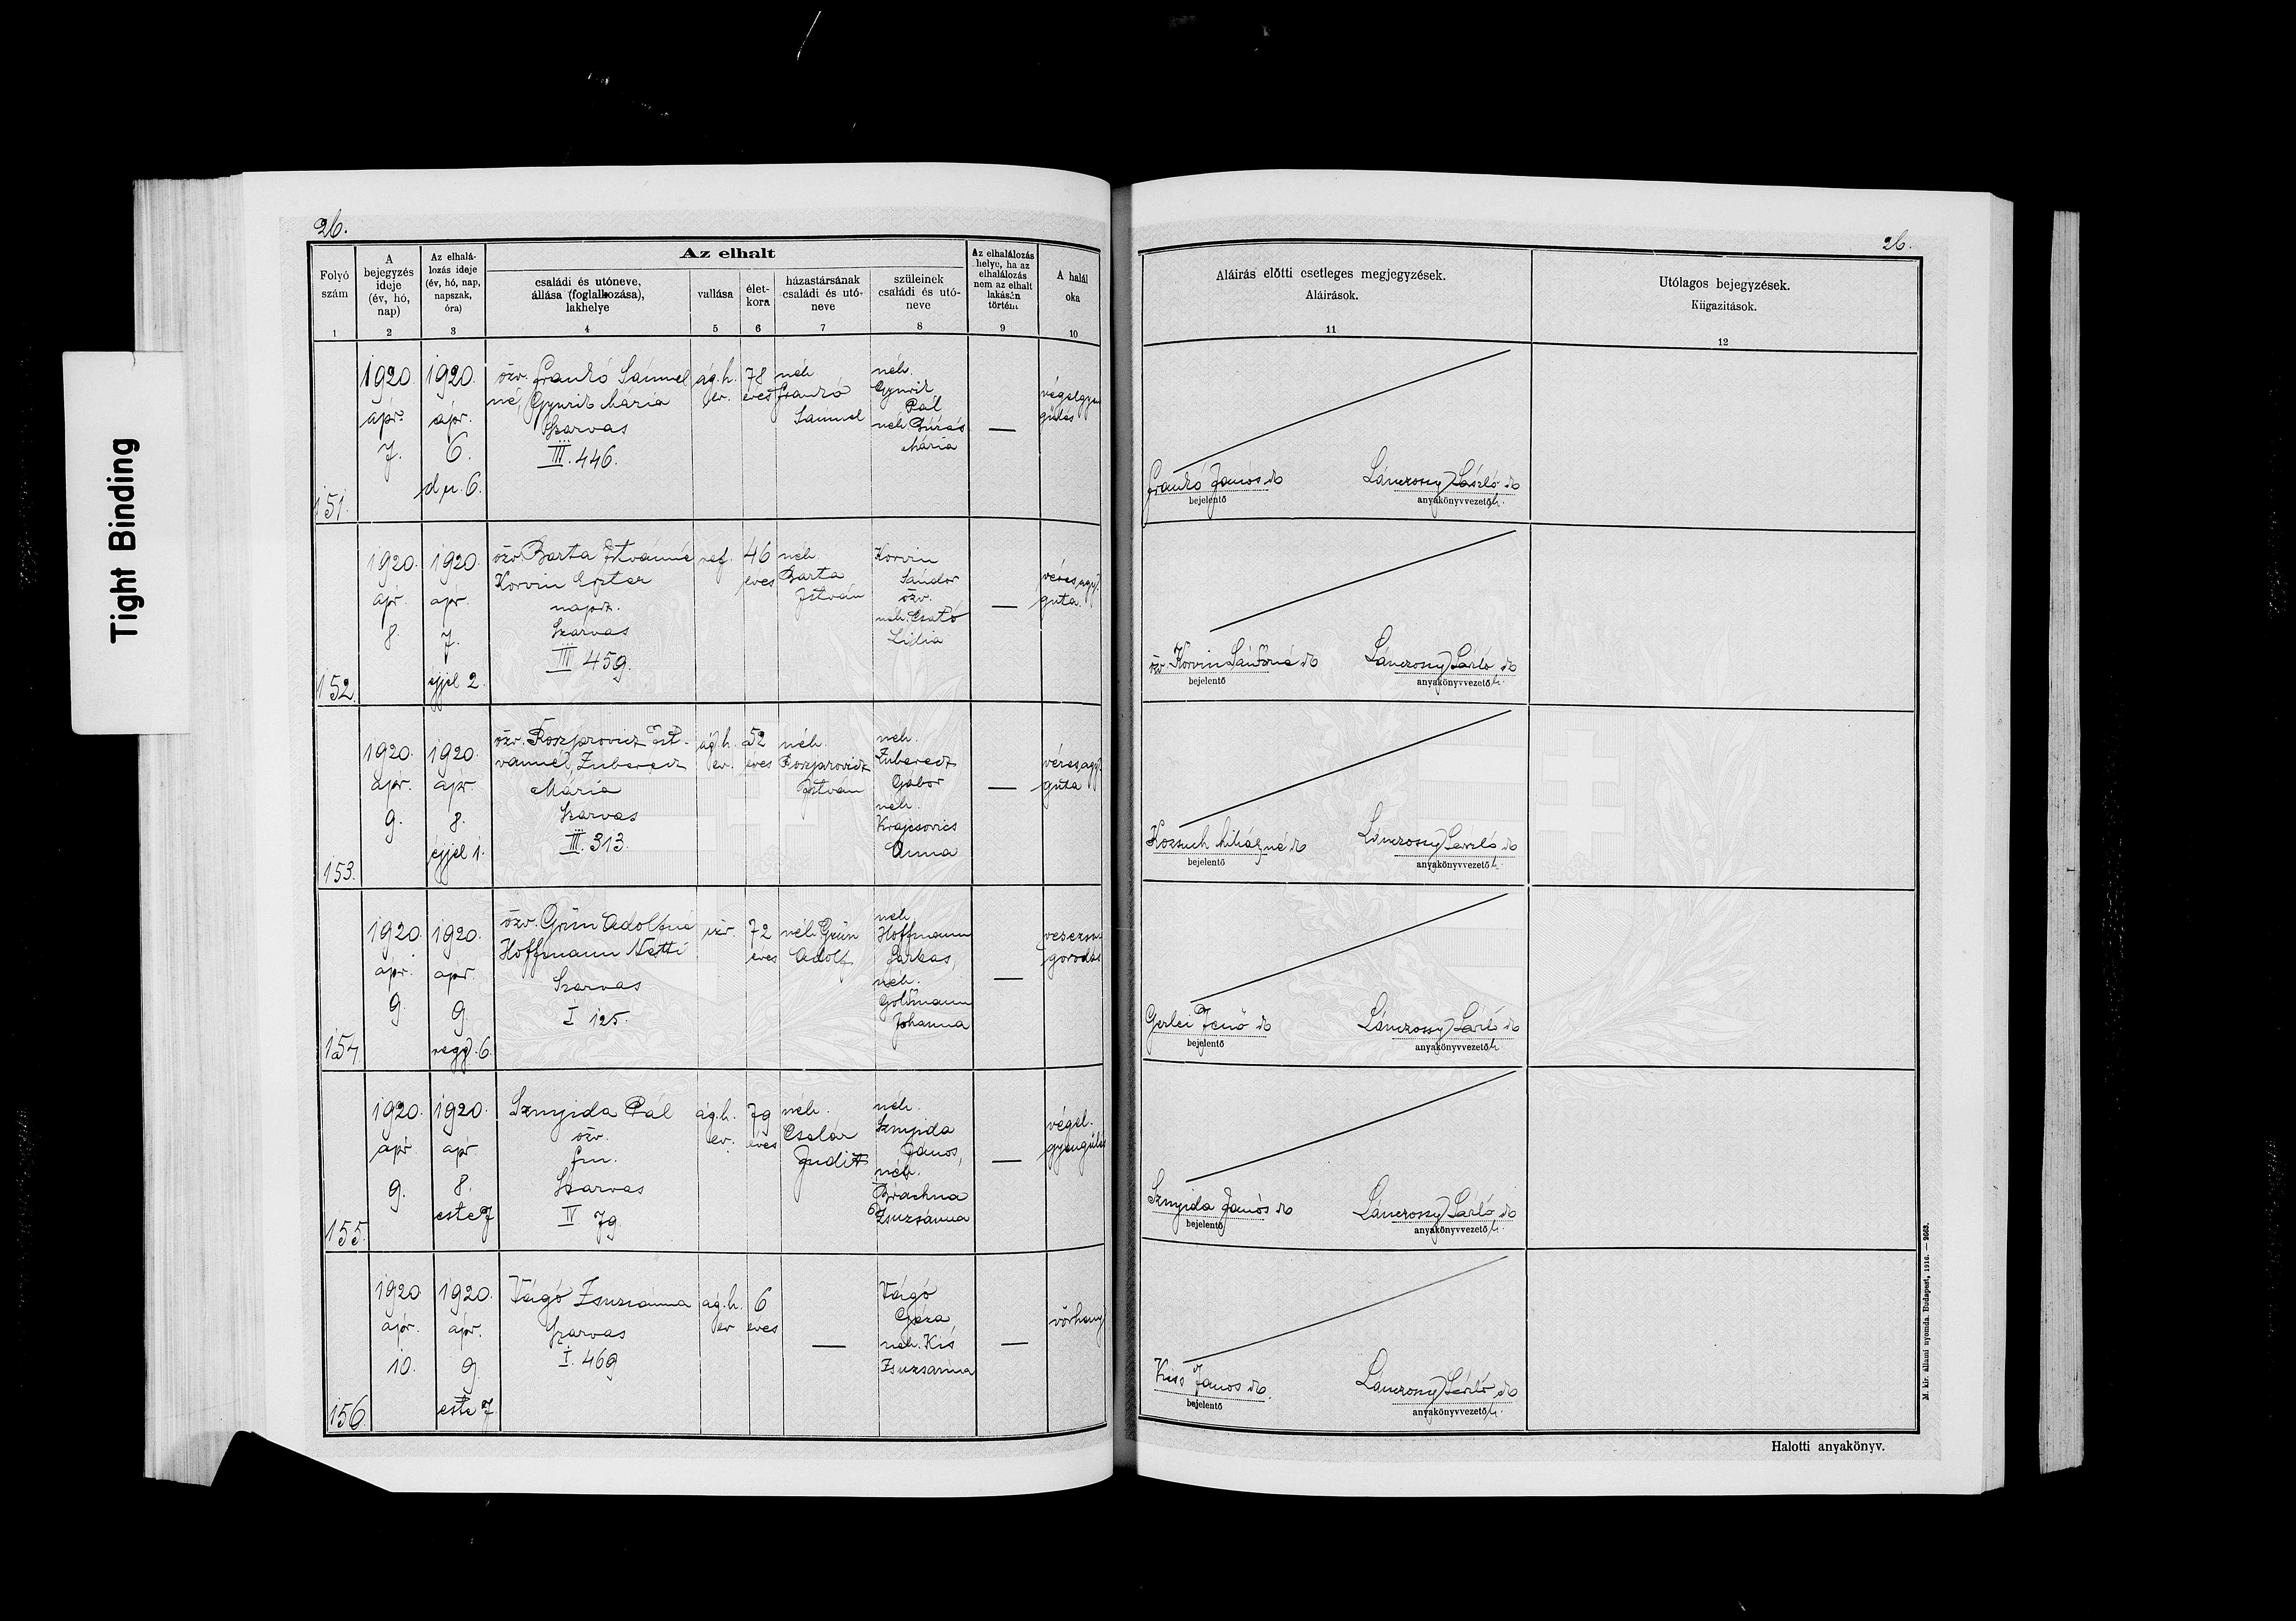 Tight Binding
26.
Az elhalt
Folyó
szám
1
A
bejegyzés
ideje
(év, hó,
nap)
2
Az elhalá-
lozás ideje
(év, hó, nap,
napszak,
óra)
3
családi és utóneve,
állása (foglalkozása),
lakhelye
4
vallása
5
élet-
kora
6
házastársának
családi és utó-
neve
7
szüleinek
családi és utó-
neve
8
Az elhalálozás
helye, ha az
elhalálozás
nem az elhalt
lakásán
történt
9
A halál
oka
10
151.
1920.
ápr.
7.
1920.
ápr.
6.
du. 6.
özv. Frankó Sámuel
né, Gyurik Mária
Szarvas
III. 446.
ág. h.
ev.
78
éves
néh.
Frankó
Sámuel
néh.
Gyurik
Pál
néh. Búzás
Mária
—
végelgyen
gülés
152.
1920.
ápr.
8.
1920.
ápr.
7.
éjjel 2.
özv. Barta Istvánné
Korvin Eszter
napsz.
Szarvas
III 459.
ref.
46
éves
néh.
Barta
István
Korvin
Sándor
özv.
néh. Csató
Lidia
—
véres agy.
guta.
153.
1920.
ápr.
9.
1920.
ápr.
8.
éjjel 1.
özv. Roszjarovicz Ist-
vánné, Zuberecz
Mária
Szarvas
III. 313.
ág. h.
ev.
52
éves
néh.
Roszjarovicz
István
néh.
Zuberecz
Gábor
néh.
Krajcsovics
Anna
—
véres agy.
guta
154.
1920.
ápr.
9.
1920.
ápr.
9.
regg. 6.
özv. Grün Adolfné
Hoffmann Netti
Szarvas
I 125.
izr.
72
éves
néh. Grün
Adolf
néh.
Hoffmann
Farkas,
néh.
Goldmann
Johanna
—
vesezsu
gorodás
155.
1920.
ápr.
9.
1920.
ápr.
8.
este 7
Sznyida Pál
özv.
fm.
Szarvas
IV 79
ág. h.
ev.
79
éves
néh.
Cselár
Judit
néh.
Sznyida
János,
néh.
Brachna
Zsuzsánna
—
végel.
gyengülés
156
1920.
ápr.
10.
1920.
ápr.
9.
este 7.
Vágó Zsuzsánna
Szarvas
I. 469
ág. h.
ev
6
éves
—
Vágó
Géza
néh. Kis
Zsuzsanna
—
vörheny
26.
Aláirás előtti esetleges megjegyzések.
Aláirások.
11
Utólagos bejegyzések.
Kiigazitások.
12
Frankó János sk
bejelentő
Lánczossy László sk
anyakönyvvezető h.
özv. Korvin Sándorné sk
bejelentő
Lánczossy László sk
anyakönyvvezető h.
Kozsuch Mihályné sk
bejelentő
Lánczossy László sk
anyakönyvvezető h.
Gerlei Jenő sk
bejelentő
Lánczossy László sk
anyakönyvvezető h.
Sznyida János sk
bejelentő
Lánczossy László sk
anyakönyvvezető h.
Kiss János sk.
bejelentő
Lánczossy László sk
anyakönyvvezető h.
M. kir. állami nyomda. Budapest, 1916. — 2663.
Halotti anyakönyv.